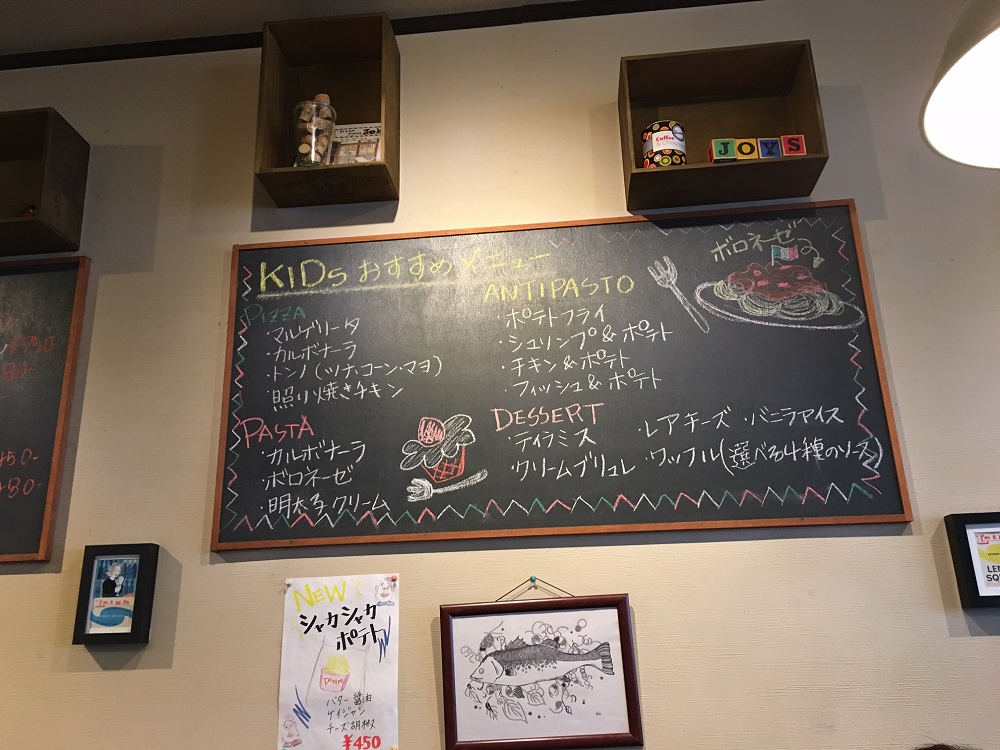 Coffee
JOYS
KIDs おすすめメニュー
PIZZA
・マルゲリータ
・カルボナーラ
・トンノ(ツナ、コーン・マヨ)
・照り焼きチキン
PASTA
・カルボナーラ
・ボロネーゼ
・明太子クリーム
ANTIPASTO
・ポテトフライ
・シュリンプ&ポテト
・チキン&ポテト
・フィッシュ&ポテト
DESSERT
・ティラミス
・クリームブリュレ
・レアチーズ ・バニラアイス
・ワッフル(選べる4種のソース)
ボロネーゼ
NEW
シャカシャカ
ポテト
Potato
バター醤油
ケイジャン
チーズ胡椒
¥450